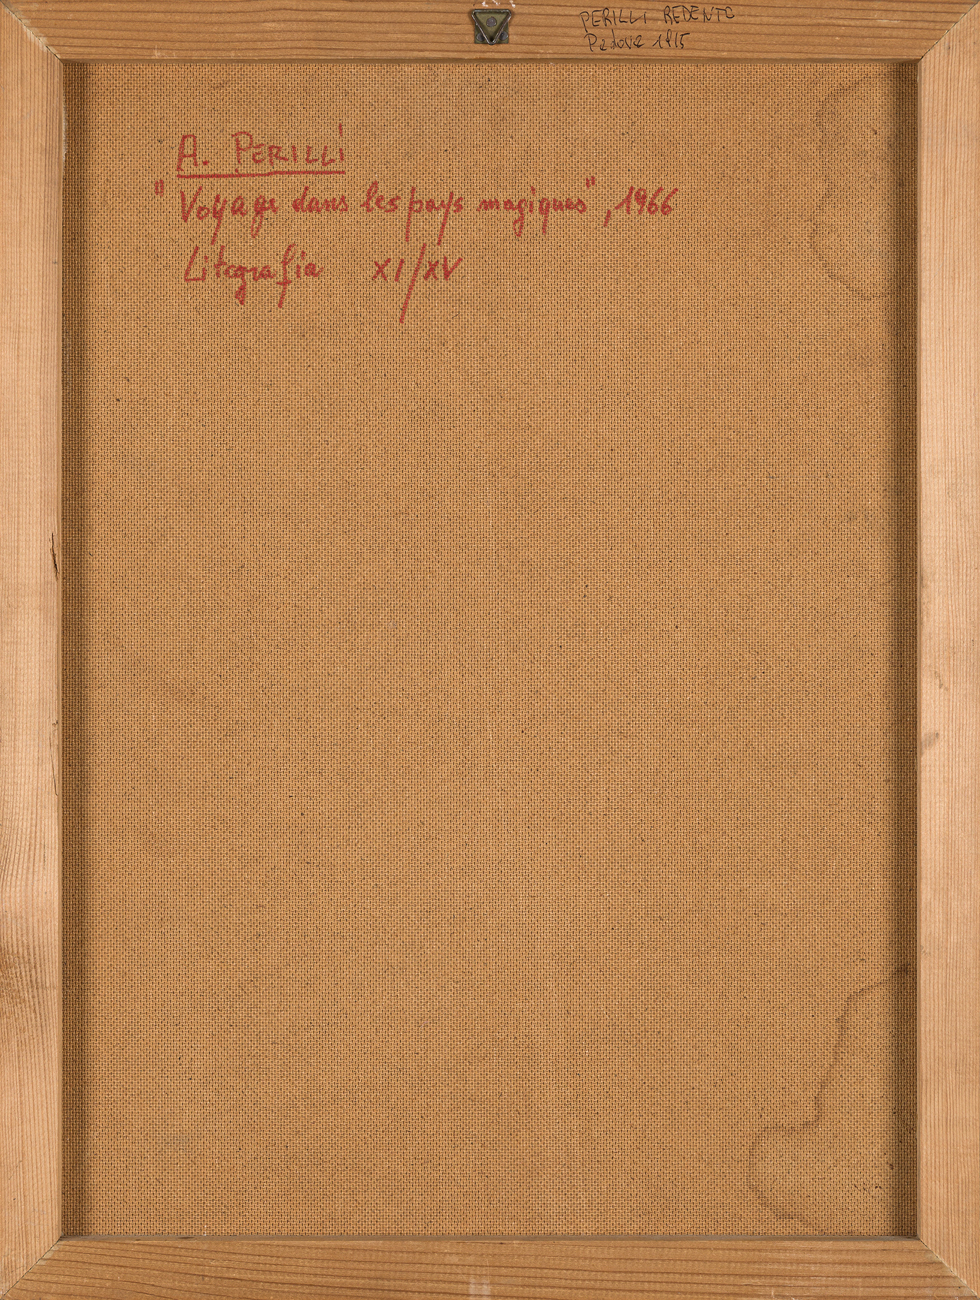 PERILLI REDENTO
Padova 1915
A. PERILLI
"Voyage dans les pays magiques", 1966
Litografia XI/XV